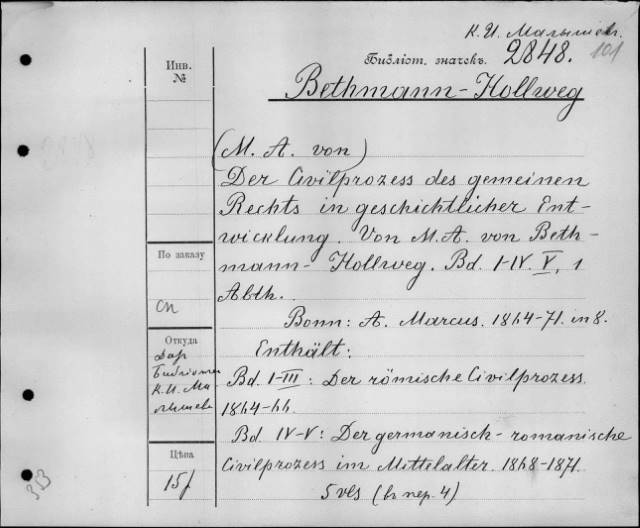 К. И. Малышев.
Библіот. значекъ. 2848. 101
Bethmann-Hollweg
(M. A. von)
Der Civilprozess des gemeinen
Rechts in geschichtlicher Ent-
wicklung. Von M. A. von Beth-
mann-Hollweg. Bd. I-IV. V, 1
Abth.
Bonn: A. Marcus. 1864-71. in 8.
Enthält:
Bd. I-III: Der römische Civilprozess.
1864-66.
Bd. IV-V: Der germanisch-romanische
Civilprozess im Mittelalter. 1868-1871.
5 vls (в пер. 4)
Инв.
№
По заказу
сп
Откуда
Дар
Библіотеки
К. И. Ма
лышева
Цѣна
15 р